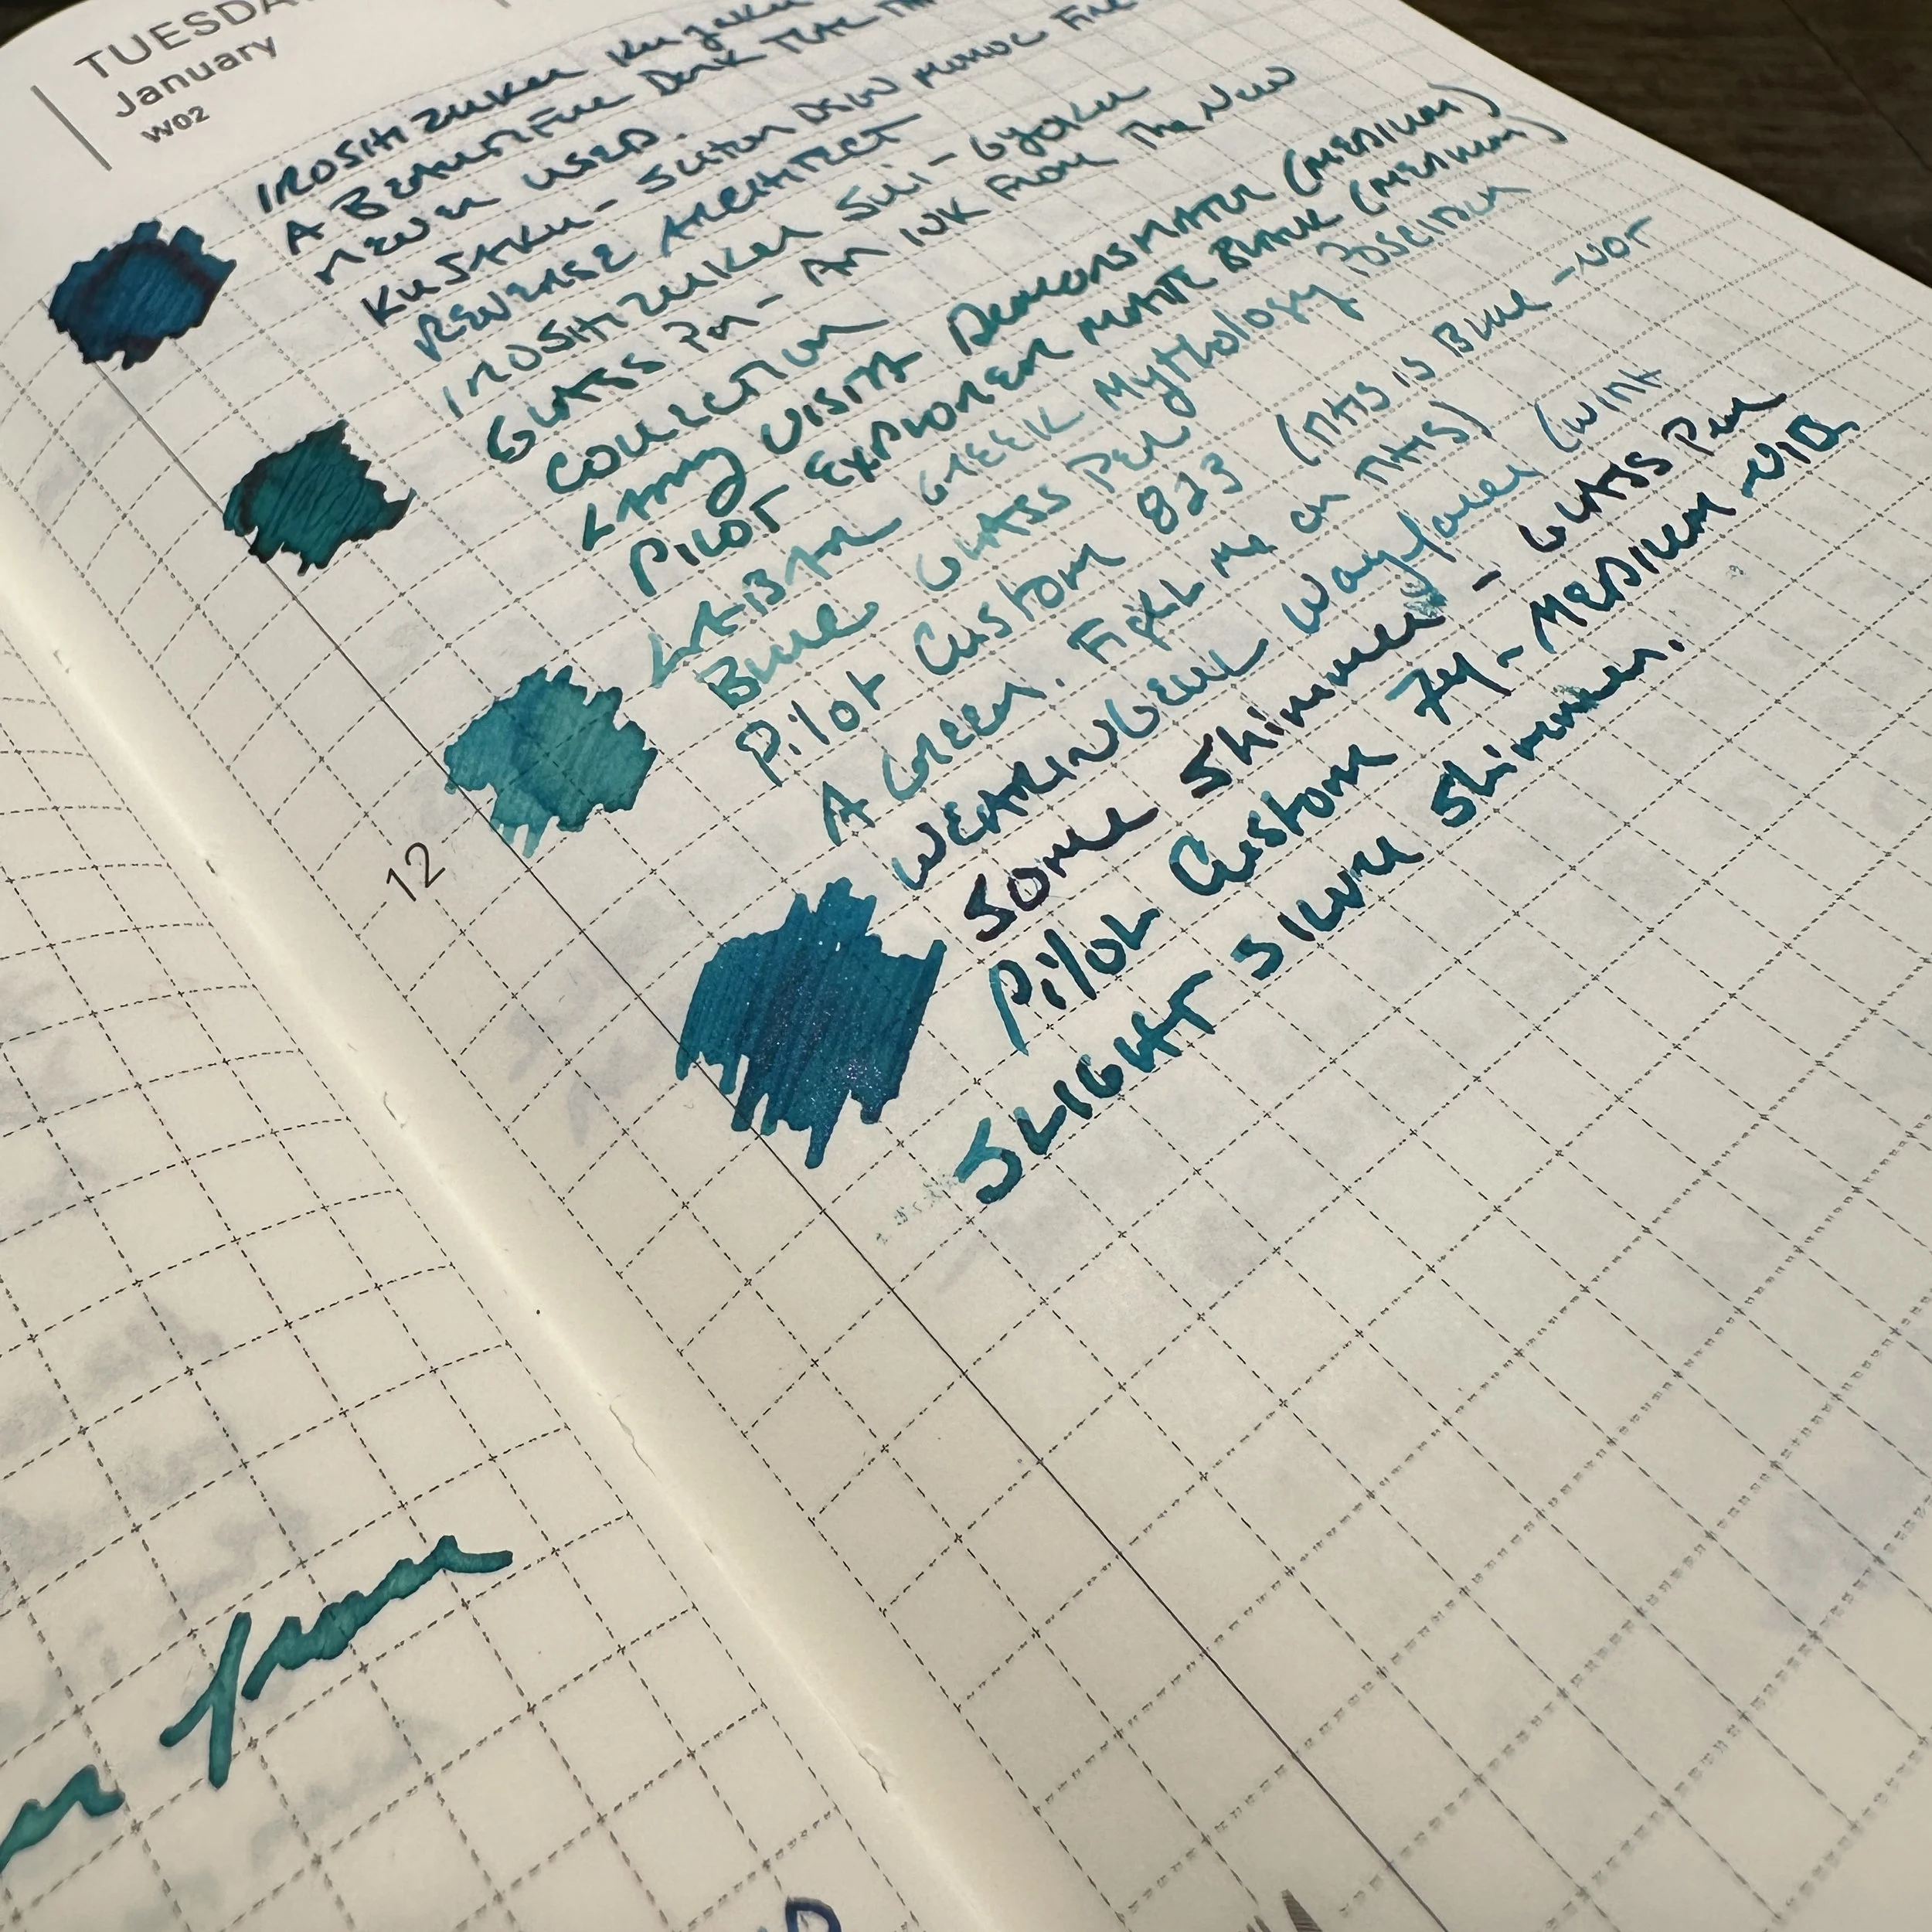 TUESDA
January
W02
IROSHIZUKU KUJAKU
A BEAUTIFUL DARK TEAL
NEVER USED.
KUJAKU - SAILOR
REVERSE ARCHITECT
IROSHIZUKU SUI-GYOKU
GLASS PEN - AN INK FROM The NEW
COLLECTION
LAMY VISTA DEMONSTRATOR (MEDIUM)
PILOT EXPLORER MATTE BLACK (MEDIUM)
GREEK Mythology POSEIDON
BLUE GLASS PEN
Pilot Custom 823 (THIS IS BLUE - NOT
A GREEN. FIGHT ME ON THIS)
WEARINGEUL Wayfarer (WITH
SOME Shimmer - GLASS PEN
Pilot Custom 74 - MEDIUM NIB
SLIGHT SILVER Shimmer.
12
from